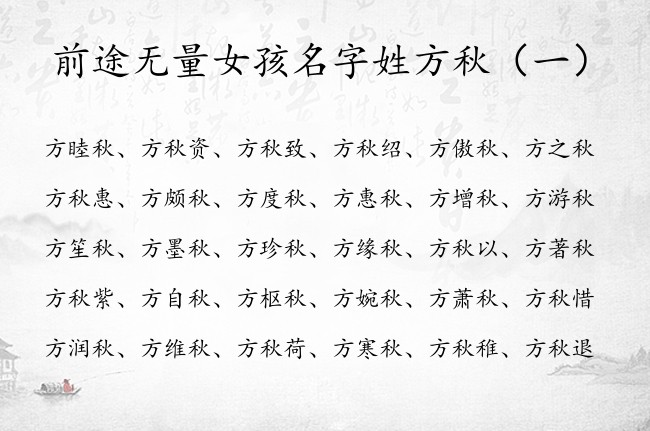 前途无量女孩名字姓方秋（一）
方睦秋、方秋资、方秋致、方秋绍、方傲秋、方之秋
方秋惠、方颇秋、方度秋、方惠秋、方增秋、方游秋
方笙秋、方墨秋、方珍秋、方缘秋、方秋以、方著秋
方秋紫、方自秋、方枢秋、方婉秋、方萧秋、方秋惜
方润秋、方维秋、方秋荷、方寒秋、方秋稚、方秋退